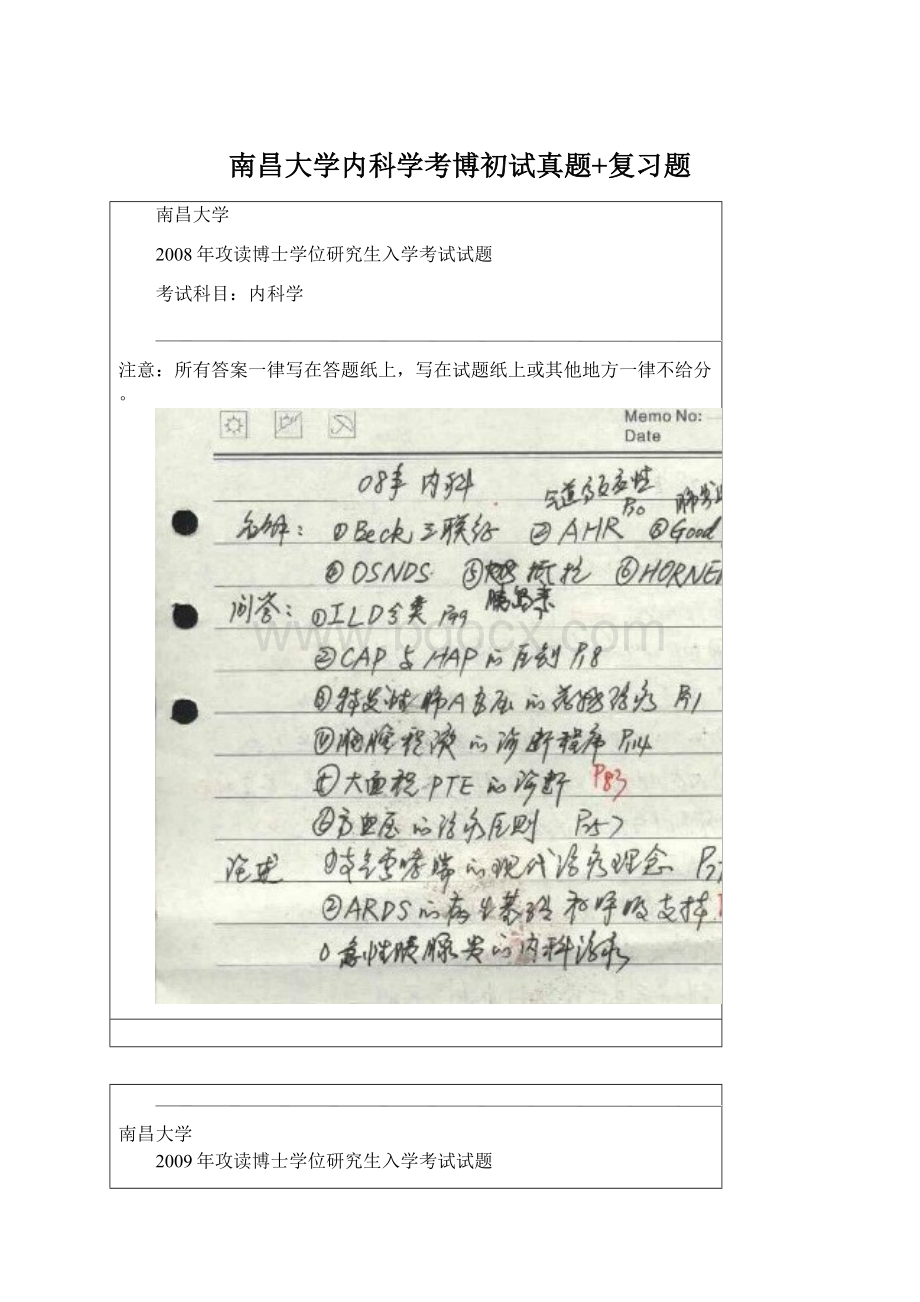 南昌大学内科学考博初试真题+复习题
南昌大学
2008年攻读博士学位研究生入学考试试题
考试科目：内科学
注意：所有答案一律写在答题纸上，写在试题纸上或其他地方一律不给分
。
Memo No:
Date
08年 内科
气道高反应性
名解： ①Beck 三联征 ②AHR ③Good
P70
④OSNDS ⑤ 抵抗 ⑥HORNER
胰岛素
问答： ①ILD分类 P99
②CAP与HAP的区别 P18
③特发性肺A高压的药物治疗 P91
④胸腔积液的诊断程序 P114
⑤大面积PTE的诊断 P83
⑥高血压的治疗原则 P257
论述 ①支气管哮喘的现代治疗理念
②ARDS的病生基础和呼吸支持
急性胰腺炎的内科治疗
www.bdocx.com
南昌大学
2009年攻读博士学位研究生入学考试试题